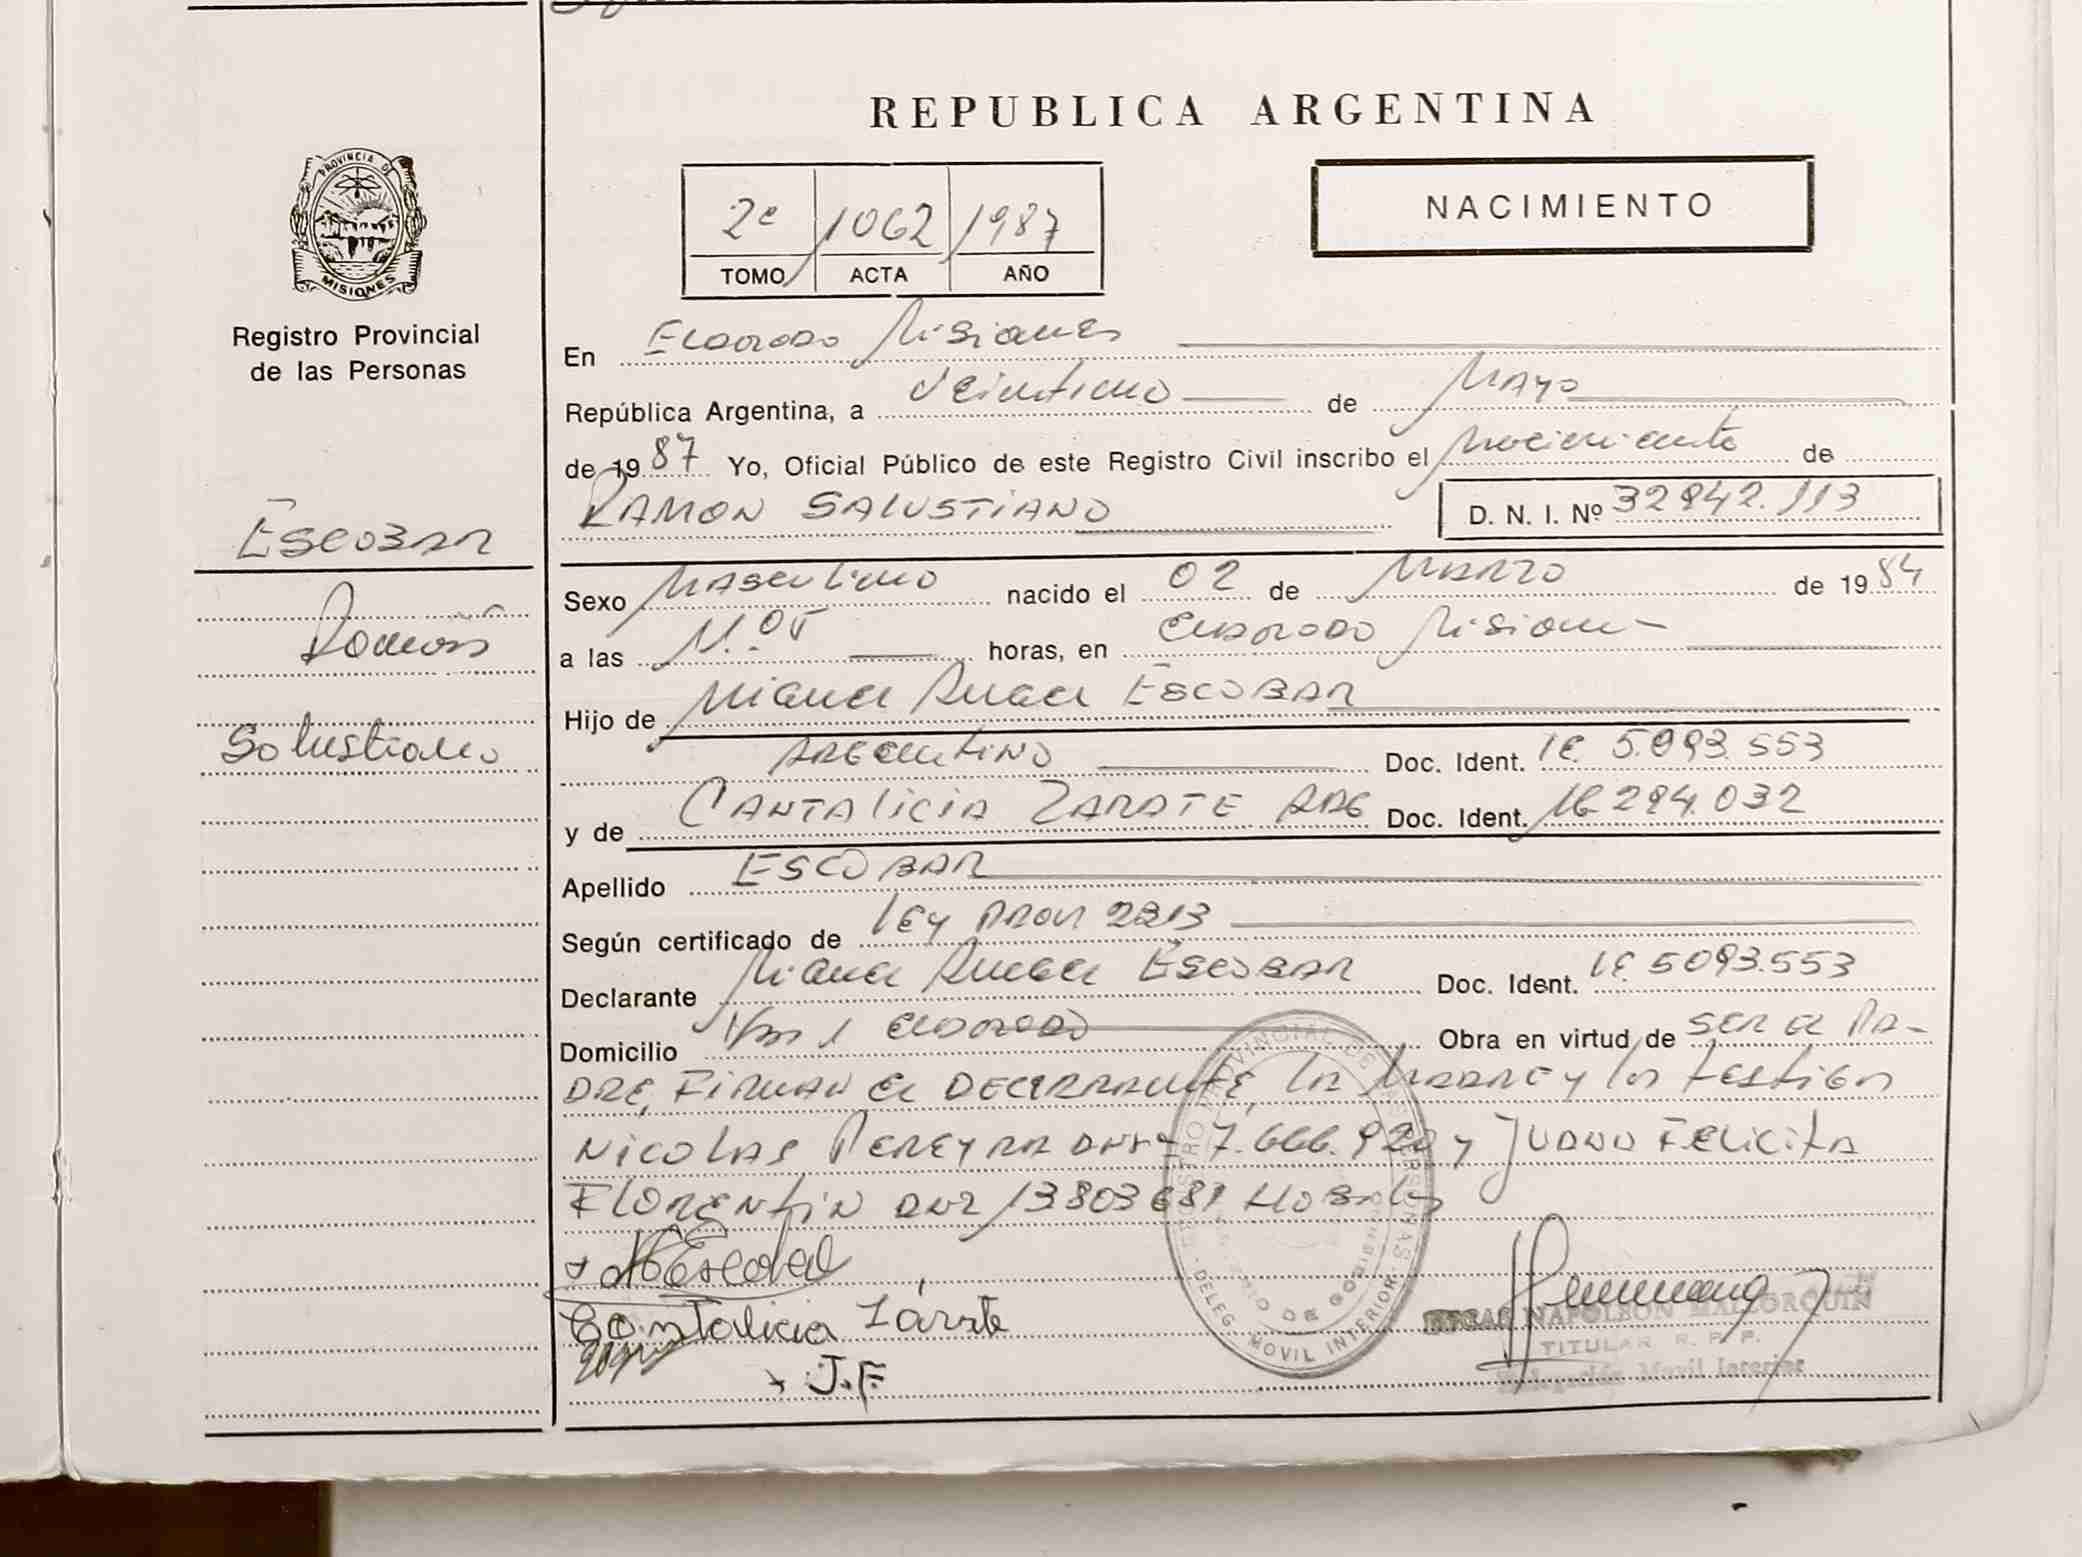 REPUBLICA ARGENTINA
PROVINCIA DE
MISIONES
Registro Provincial
de las Personas
2e 1062 1987
TOMO ACTA AÑO
NACIMIENTO
En Eldorado Misiones
República Argentina, a Veintiuno de Mayo
de 1987 Yo, Oficial Público de este Registro Civil inscribo el Nacimiento de
RAMON SALUSTIANO D. N. I. Nº 32942.113
ESCOBAR
Ramón
Salustiano
Sexo Masculino nacido el 02 de MARZO de 1984
a las horas, en Eldorado Misiones
Hijo de Miguel Angel ESCOBAR
ARGENTINO Doc. Ident. LE 5.093.553
y de CANTALICIA ZARATE ARG Doc. Ident. 16 294.032
Apellido ESCOBAR
Según certificado de LEY PROV 2313
Declarante Miguel Angel ESCOBAR Doc. Ident. LE 5093.553
Domicilio Km 1 Eldorado Obra en virtud de SER el PA-
DRE, FIRMAN El DECLARANTE, la MADRE y los testigos
NICOLAS PEREYRA DNI 7.666.920 y JUANA FELICITA
FLORENTIN DNI 13803681
Escobar
Cantalicia Zárate
J.F.
REGISTRO PROVINCIAL DE LAS PERSONAS
MINISTERIO DE GOBIERNO
DELEG. MOVIL INTERIOR
EDGAR NAPOLEON MALLORQUIN
TITULAR R. P. P.
Delegación Movil Interior